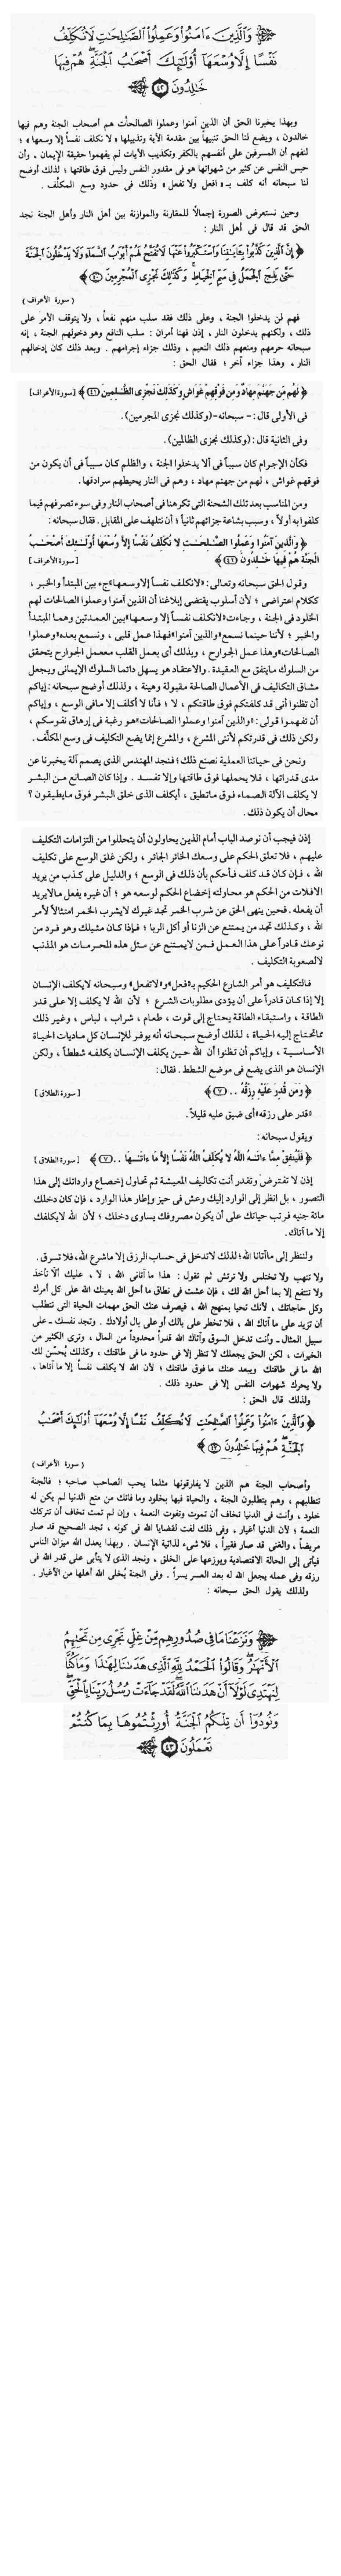 وَالَّذِينَ ءَامَنُوا وَعَمِلُوا الصَّلِحَتِ لَا نُكَلِّفُ
نَفْسًا إِلَّا وُسْعَهَا أُوْلَئِكَ أَصْحَبُ الْجَنَّةِ هُمْ فِيهَا
خَلِدُونَ ٤٢
وبهذا يخبرنا الحق أن الذين آمنوا وعملوا الصالحات هم أصحاب الجنة وهم فيها
خالدون ، ويضع لنا الحق تنبيهاً بين مقدمة الآية وتذييلها « لا نكلف نفساً إلا وسعها » ؛
لنفهم أن المسرفين على أنفسهم بالكفر وتكذيب الآيات لم يفهموا حقيقة الإيمان ، وأن
حبس النفس عن كثير من شهواتها هو فى مقدور النفس وليس فوق طاقتها ؛ لذلك أوضح
لنا سبحانه أنه كلف بـ « افعل ولا تفعل » وذلك فى حدود وسع المكلَّف .
وحين نستعرض الصورة إجمالاً للمقارنة والموازنة بين أهل النار وأهل الجنة نجد
الحق قد قال فى أهل النار :
﴿ إِنَّ الَّذِينَ كَذَّبُوا بِئَايَتِنَا وَاسْتَكْبَرُوا عَنْهَا لَا تُفَتَّحُ لَهُمْ أَبْوَبُ السَّمَاءِ وَلَا يَدْخُلُونَ الْجَنَّةَ
حَتَّى يَلِجَ الْجَمَلُ فِي سَمِّ الْخِيَاطِ وَكَذَلِكَ نَجْزِي الْمُجْرِمِينَ ٤٠ ﴾
( سورة الأعراف )
فهم لن يدخلوا الجنة ، وعلى ذلك فقد سلب منهم نفعاً ، ولا يتوقف الأمر على
ذلك ، ولكنهم يدخلون النار ، إذن فهنا أمران : سلب النافع وهو دخولهم الجنة ، إنه
سبحانه حرمهم ومنعهم ذلك النعيم ، وذلك جزاء إجرامهم . وبعد ذلك كان إدخالهم
النار ، وهذا جزاء آخر ؛ فقال الحق :
﴿ لَهُم مِّن جَهَنَّمَ مِهَادٌ وَمِن فَوْقِهِمْ غَوَاشٍ وَكَذَلِكَ نَجْزِي الظَّلِمِينَ ٤١ ﴾ [سورة الأعراف]
فى الأولى قال : - سبحانه - (وكذلك نجزى المجرمين) .
وفى الثانية قال : (وكذلك نجزى الظالمين) .
فكأن الإجرام كان سبباً فى ألا يدخلوا الجنة ، والظلم كان سبباً فى أن يكون من
فوقهم غواش ، لهم من جهنم مهاد ، وهم فى النار يحيطهم سرادقها .
ومن المناسب بعد تلك الشحنة التى تكرهنا فى أصحاب النار وفى سوء تصرفهم فيما
كلفوا به أولاً ، وسبب بشاعة جزائهم ثانياً ؛ أن نتلهف على المقابل . فقال سبحانه :
﴿ وَالَّذِينَ آمَنُوا وَعَمِلُوا الصَّلِحَتِ لَا نُكَلِّفُ نَفْسًا إِلَّا وُسْعَهَا أُوْلَئِكَ أَصْحَبُ
الْجَنَّةِ هُمْ فِيهَا خَلِدُونَ ٤٢ ﴾ [سورة الأعراف]
وقول الحق سبحانه وتعالى : «لا نكلف نفساً إلا وسعها» جاء بين المبتدأ والخبر ،
ككلام اعتراضى ؛ لأن أسلوب يقتضى إبلاغنا أن الذين آمنوا وعملوا الصالحات لهم
الخلود فى الجنة ، وجاءت «لا نكلف نفساً إلا وسعها» بين العمدتين وهما المبتدأ
والخبر ؛ لأننا حينما نسمع «والذين آمنوا» فهذا عمل قلبى ، ونسمع بعده «وعملوا
الصالحات» وهذا عمل الجوارح ، وبذلك أى بعمل القلب مع عمل الجوارح يتحقق
من السلوك ما يتفق مع العقيدة . والاعتقاد هو يسهل دائما السلوك الإيمانى ويجعل
مشاق التكاليف فى الأعمال الصالحة مقبولة وهينة ، ولذلك أوضح سبحانه : إياكم
أن تظنوا أنى قد كلفتكم فوق طاقتكم ، لا ؛ فأنا لا أكلف إلا ما فى الوسع ، وإياكم
أن تفهموا قولى : «والذين آمنوا وعملوا الصالحات» هو رغبة فى إرهاق نفوسكم ،
ولكن ذلك فى قدرتكم لأننى المشرع ، والمشرع إنما يضع التكليف فى وسع المكلَّف .
ونحن فى حياتنا العملية نصنع ذلك ؛ فنجد المهندس الذى يصمم آلة يخبرنا عن
مدى قدراتها ، فلا يحملها فوق طاقتها وإلا تفسد . وإذا كان الصانع من البشر
لا يكلف الآلة الصماء فوق ما تطيق ، أيكلف الذى خلق البشر فوق ما يطيقون ؟
محال أن يكون ذلك .
إذن فيجب أن نوصد الباب أمام الذين يحاولون أن يتحللوا من التزامات التكليف
عليهم ، فلا تعلق الحكم على وسعك الخائر الجائر ، ولكن علق الوسع على تكليف
الله ، فإن كان قد كلف فأحكم بأن ذلك فى الوسع ؛ والدليل على كذب من يريد
الافلات من الحكم هو محاولته إخضاع الحكم لوسعه هو ؛ أن غيره يفعل ما لا يريد
أن يفعله . فحين ينهى الحق عن شرب الخمر تجد غيرك لا يشرب الخمر امتثالاً لأمر
الله ، وكذلك تجد من يمتنع عن الزنا أو أكل الربا ؛ فإذا كان مثيلك وهو فرد من
نوعك قادراً على هذا العمل فمن لا يمتنع عن مثل هذه المحرمات هو المذنب
لا لصعوبة التكليف .
فالتكليف هو أمر الشارع الحكيم بـ«افعل» و«لا تفعل» وسبحانه لا يكلف الإنسان
إلا إذا كان قادراً على أن يؤدى مطلوبات الشرع ؛ لأن الله لا يكلف إلا على قدر
الطاقة ، واستبقاء الطاقة يحتاج إلى قوت ، طعام ، شراب ، لباس ، وغير ذلك
مما تحتاج إليه الحياة ، لذلك أوضح سبحانه أنه يوفر للإنسان كل ماديات الحياة
الأساسية ، وإياكم أن تظنوا أن الله حين يكلف الإنسان يكلفه شططاً ، ولكن
الإنسان هو الذى يضع فى موضع الشطط . فقال :
﴿ وَمَن قُدِرَ عَلَيْهِ رِزْقُهُ .. ٧ ﴾ [ سورة الطلاق ]
«قدر على رزقه» أى ضيق عليه قليلاً .
ويقول سبحانه :
﴿ فَلْيُنفِقْ مِمَّا ءَاتَىهُ اللَّهُ لَا يُكَلِّفُ اللَّهُ نَفْسًا إِلَّا مَا ءَاتَىهَا .. ٧ ﴾ [ سورة الطلاق ]
إذن لا تفترض وتقدر أنت تكاليف المعيشة ثم تحاول إخضاع وارداتك إلى هذا
التصور ، بل انظر إلى الوارد إليك وعش فى حيز وإطار هذا الوارد ، فإن كان دخلك
مائة جنيه فرتب حياتك على أن يكون مصروفك يساوى دخلك ؛ لأن الله لا يكلفك
إلا ما آتاك .
ولننظر إلى ما آتانا الله ؛ لذلك لا تدخل فى حساب الرزق إلا ما شرع الله ، فلا تسرق .
ولا تنهب ولا تختلس ولا ترتش ثم تقول : هذا ما آتانى الله ، لا ، عليك ألا تأخذ
ولا تنتفع إلا بما أحل الله لك ، فإن عشت فى نطاق ما أحل الله يعينك الله على كل أمرك
وكل حاجاتك ، لأنك تحيا بمنهج الله ، فيصرف عنك الحق مهمات الحياة التى تتطلب
أن تزيد على ما آتاك الله ، فلا تخطر على بالك أو على بال أولادك . وتجد نفسك - على
سبيل المثال - وأنت تدخل السوق وآتاك الله قدراً محدوداً من المال ، وترى الكثير من
الخيرات ، لكن الحق يجعلك لا تنظر إلا فى حدود ما فى طاقتك ، وكذلك يُحسّن لك
الله ما فى طاقتك ويبعد عنك ما فوق طاقتك ؛ لأن الله لا يكلف نفساً إلا ما آتاها ،
ولا يحرك شهوات النفس إلا فى حدود ذلك .
ولذلك قال الحق :
﴿ وَالَّذِينَ ءَامَنُوا وَعَمِلُوا الصَّلِحَتِ لَا نُكَلِّفُ نَفْسًا إِلَّا وُسْعَهَا أُوْلَئِكَ أَصْحَبُ
الْجَنَّةِ هُمْ فِيهَا خَلِدُونَ ٤٢ ﴾
( سورة الأعراف )
وأصحاب الجنة هم الذين لا يفارقونها مثلما يحب الصاحب صاحبه ؛ فالجنة
تتطلبهم ، وهم يتطلبون الجنة ، والحياة فيها بخلود وما فاتك من متع الدنيا لم يكن له
خلود ، وأنت فى الدنيا تخاف أن تموت وتفوت النعمة ، وإن لم تمت تخاف أن تتركك
النعمة ؛ لأن الدنيا أغيار ، وفى ذلك لفت لقضايا الله فى كونه ، تجد الصحيح قد صار
مريضاً ، والغنى قد صار فقيراً ، فلا شىء لذاتية الإنسان . وبهذا يعدل الله ميزان الناس
فيأتى إلى الحالة الاقتصادية ويوزعها على الخلق ، ونجد الذى لا يتأبى على قدر الله فى
رزقه وفى عمله يجعل الله له بعد العسر يسراً . وفى الجنة يُخلى الله أهلها من الأغيار .
ولذلك يقول الحق سبحانه :
وَنَزَعْنَا مَا فِي صُدُورِهِم مِّنْ غِلٍّ تَجْرِي مِن تَحْتِهِمُ
الْأَنْهَرُ وَقَالُوا الْحَمْدُ لِلَّهِ الَّذِي هَدَىنَا لِهَذَا وَمَا كُنَّا
لِنَهْتَدِيَ لَوْلَا أَنْ هَدَىنَا اللَّهُ لَقَدْ جَاءَتْ رُسُلُ رَبِّنَا بِالْحَقِّ
وَنُودُوا أَن تِلْكُمُ الْجَنَّةُ أُورِثْتُمُوهَا بِمَا كُنتُمْ
تَعْمَلُونَ ٤٣